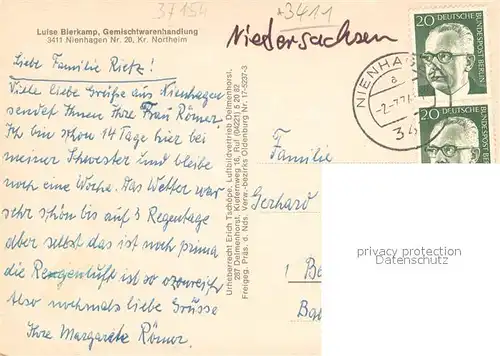 37154
*3411
Luise Bierkamp, Gemischtwarenhandlung
3411 Nienhagen Nr. 20, Kr. Northeim
Niedersachsen
20 DEUTSCHE BUNDESPOST BERLIN
20 DEUTSCHE BUNDESPOST BERLIN
NIENHAG
a
34
Liebe Familie Rietz!
Viele liebe Grüße aus Nienhagen
sendet Ihnen Ihre Frau Römer.
Ich bin schon 14 Tage hier bei
meiner Schwester und bleibe
noch eine Woche. Das Wetter war
sehr schön bis auf 3 Regentage
aber selbst das ist noch prima
die Regenluft ist so ozonreich
Also nochmals liebe Grüsse
Ihre Margarete Römer.
Urheberrecht Erich Tschöpe, Luftbildvertrieb Delmenhorst,
287 Delmenhorst, Kiefernweg 16, Ruf (04221) 5 20 82
Freigeg. Präs. d. Nds. Verw.-bezirks Oldenburg Nr. 17-5237-3
Familie
Gerhard
1 B
Ba
privacy protection
Datenschutz